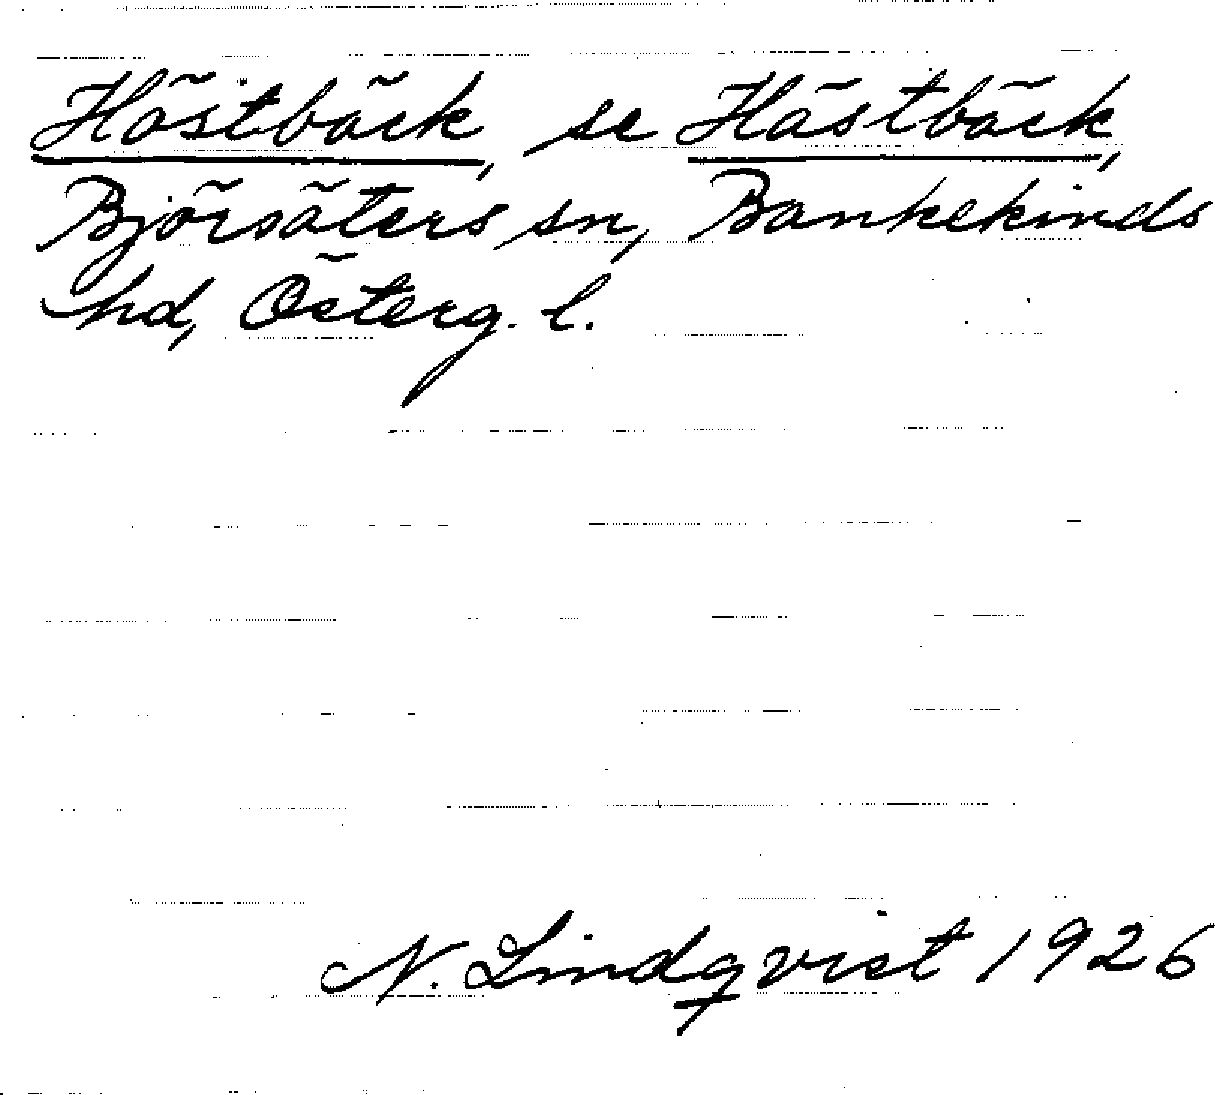 Hästbäck, se Hästbäck,
Björsäters sn, Bankekinds
hd, Österg. l.
N. Lindqvist 1926